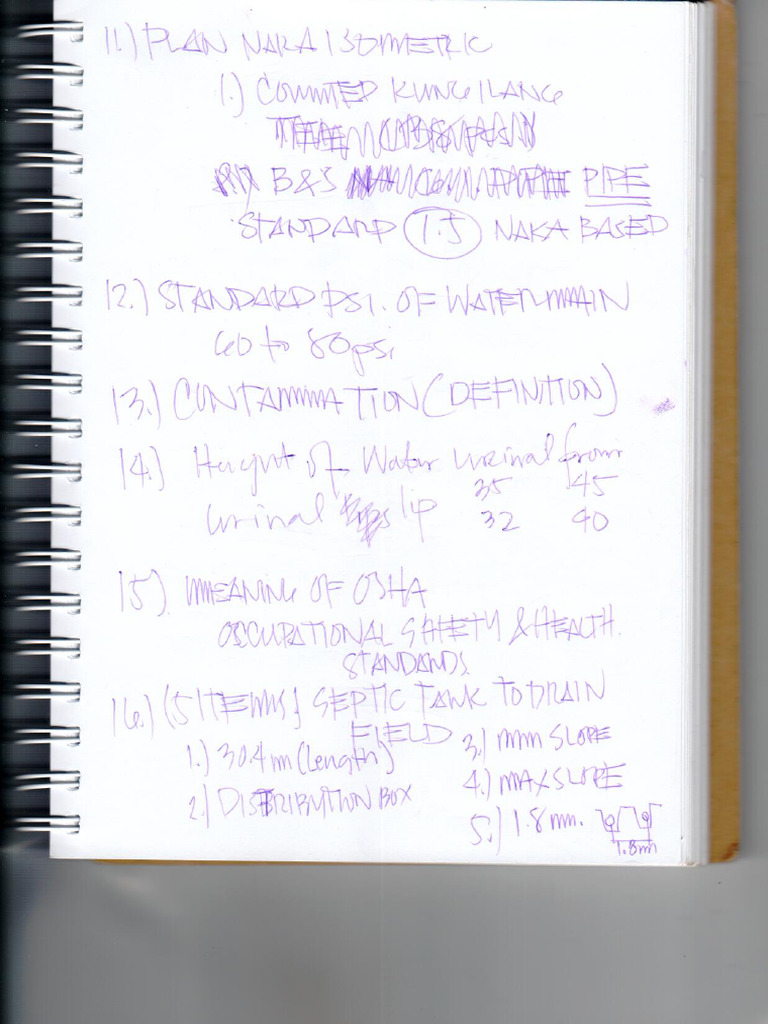 11.) PLAN NAKA ISOMETRIC
1.) COUNTED KUNG ILANG
B&S PIPE
STANDARD 1.5 NAKA BASED
12.) STANDARD psi. OF WATERMAIN
60 to 80 psi
13.) CONTAMINATION (DEFINITION)
14.) Height of Water Urinal from
35 45
Urinal lip 32 40
15.) MEANING OF OSHA
OCCUPATIONAL SAFETY & HEALTH.
STANDARDS.
16.) (5 ITEMS) SEPTIC TANK TO DRAIN
FIELD
1.) 30.4 m (Length)
2.) DISTRIBUTION BOX
3.) min SLOPE
4.) MAX SLOPE
5.) 1.8 mm.
1.8m